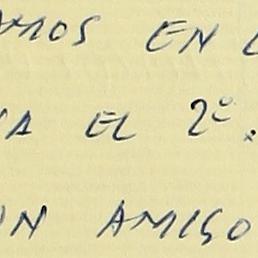 AMOS EN
A EL 2º.
UN AMIGO